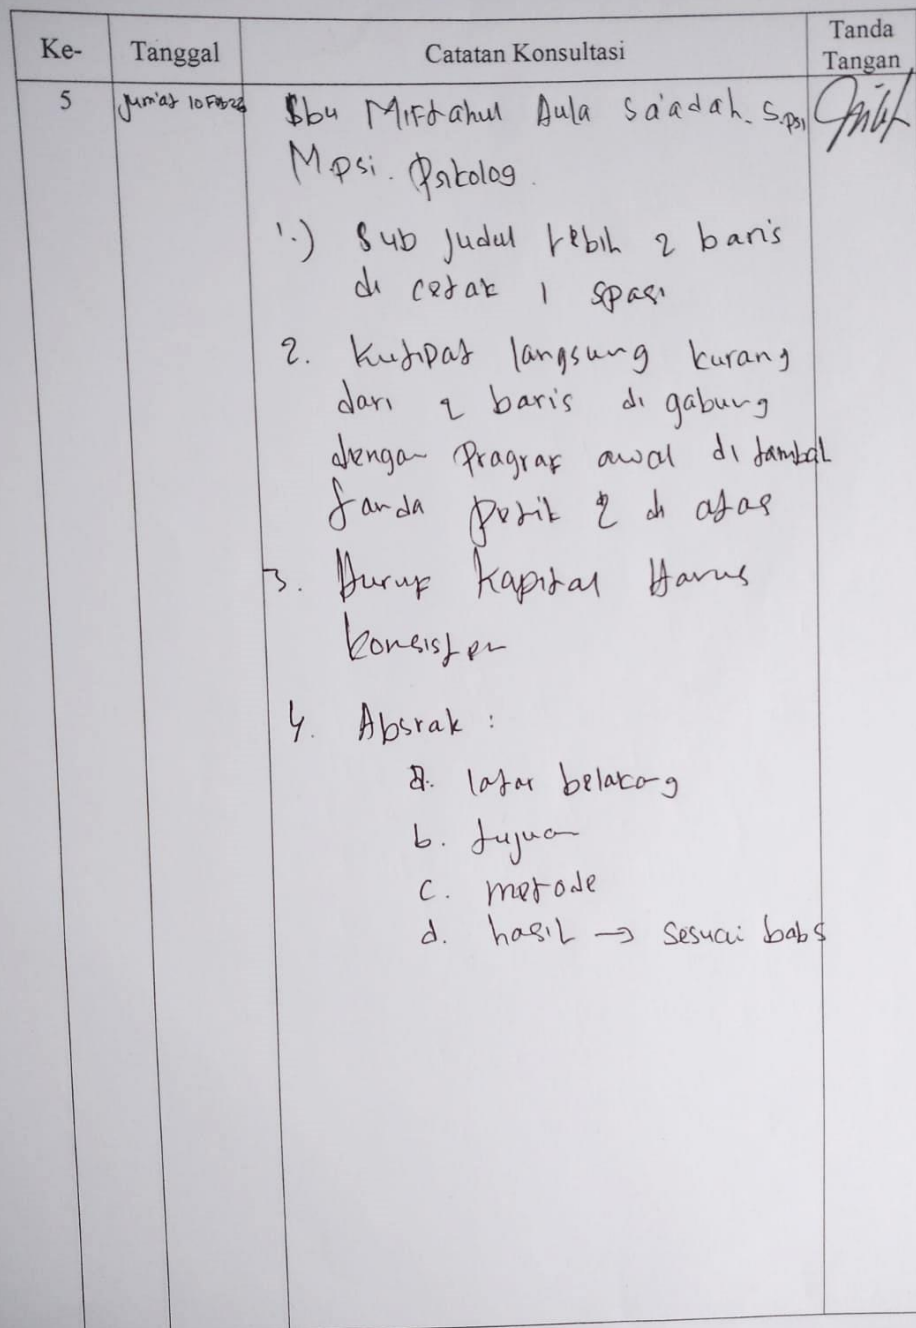 Ke-
Tanggal
Catatan Konsultasi
Tanda
Tangan
5
Jum'at 10 Feb
Ibu Miftahul Aula Sa'adah. S.psi
M.psi. Psikolog.
1.) Sub judul lebih 2 baris
di cetak 1 spasi
2. Kutipat langsung kurang
dari 2 baris di gabung
dengan Pragraf awal di tambah
tanda petik 2 di atas
3. Huruf Kapital Harus
konsisten
4. Absrak :
a. latar belakang
b. tujuan
c. metode
d. hasil → sesuai bab 5